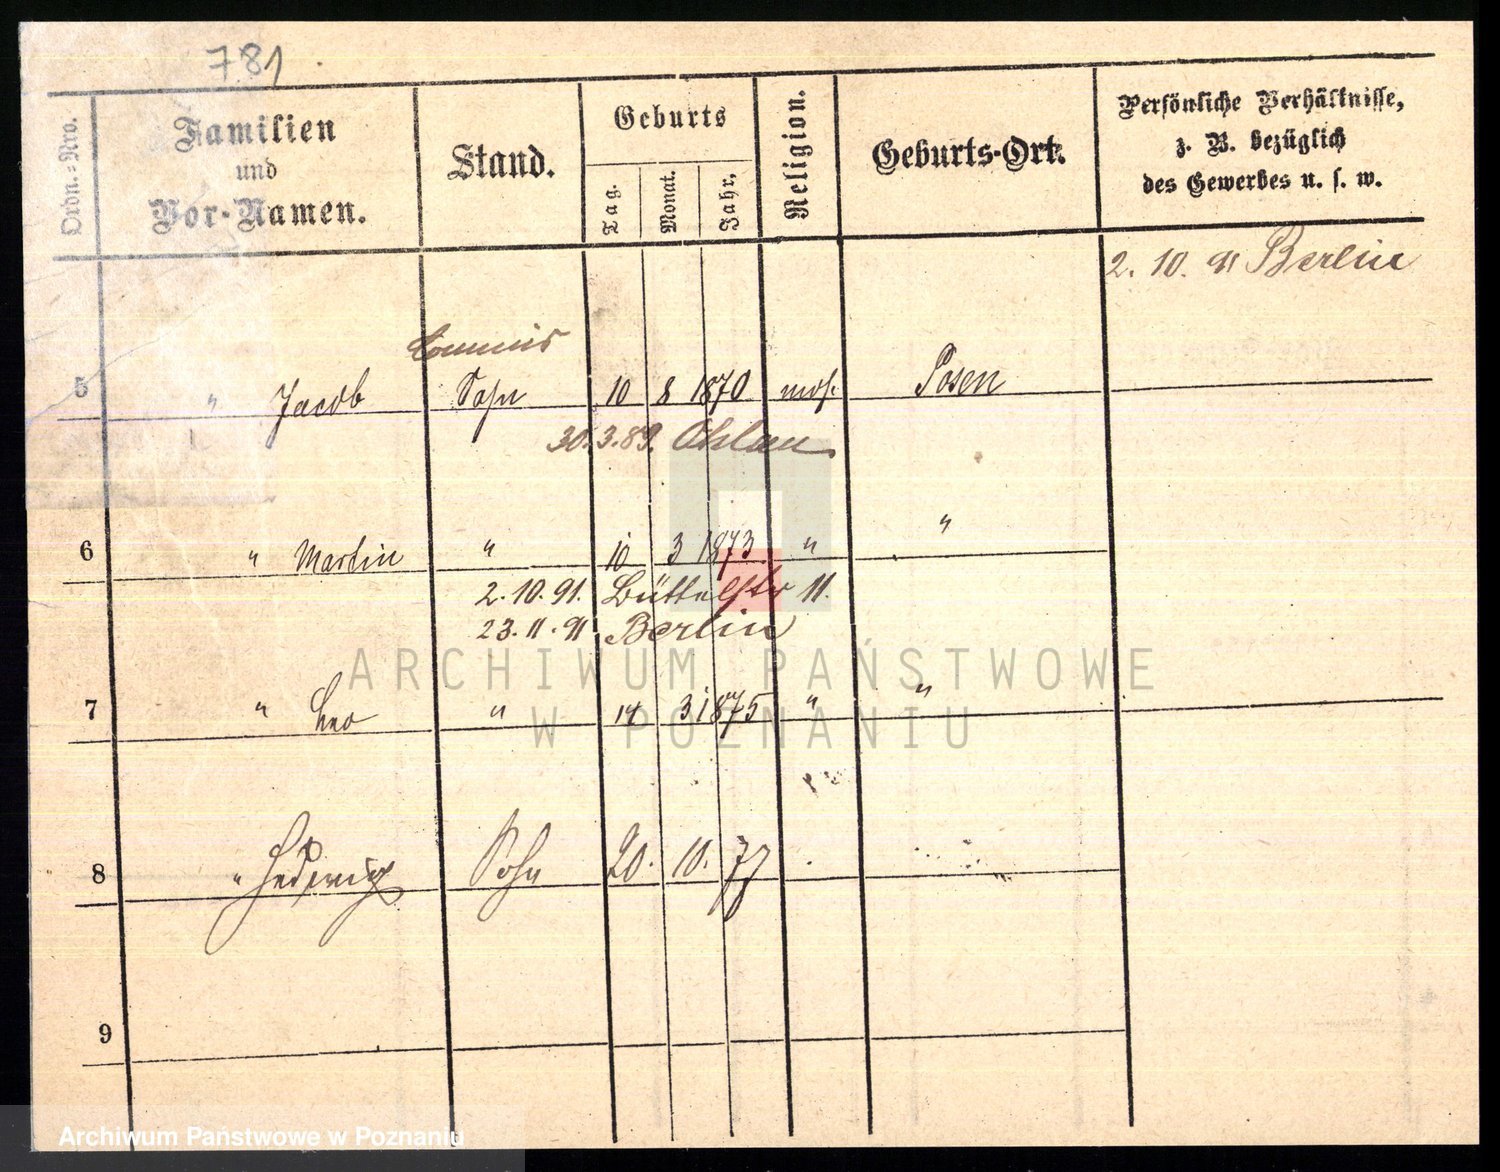 781
Ordn.-Nro.
Familien
und
Vor-Namen.
Stand.
Geburts
Tag.
Monat.
Jahr.
Religion.
Geburts-Ort.
Persönliche Verhältnisse,
z. B. bezüglich
des Gewerbes u. s. w.
2. 10. 91 Berlin
Commis
5 " Jacob Sohn 10 8 1870 mos. Posen
30.3.89. Ohlau
6 " Martin " 10 3 1873 " "
2.10.91. Büttelstr 11.
23.11.91 Berlin
7 " Leo " 14 3 1875 " "
ARCHIWUM PAŃSTWOWE
W POZNANIU
8 " Hedwig Sohn 20. 10. 77
9
Archiwum Państwowe w Poznaniu